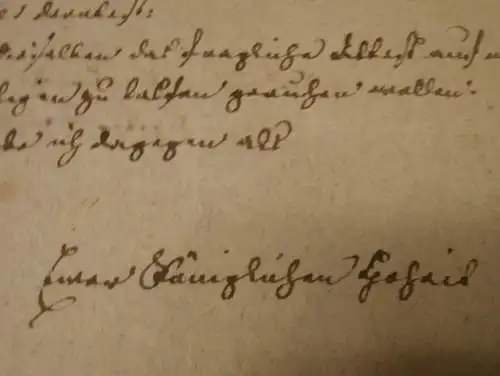 derselben das fragliche Attest auf
zu lassen geruhen wollen.
ich dagegen als
Ewer Königlichen Hoheit